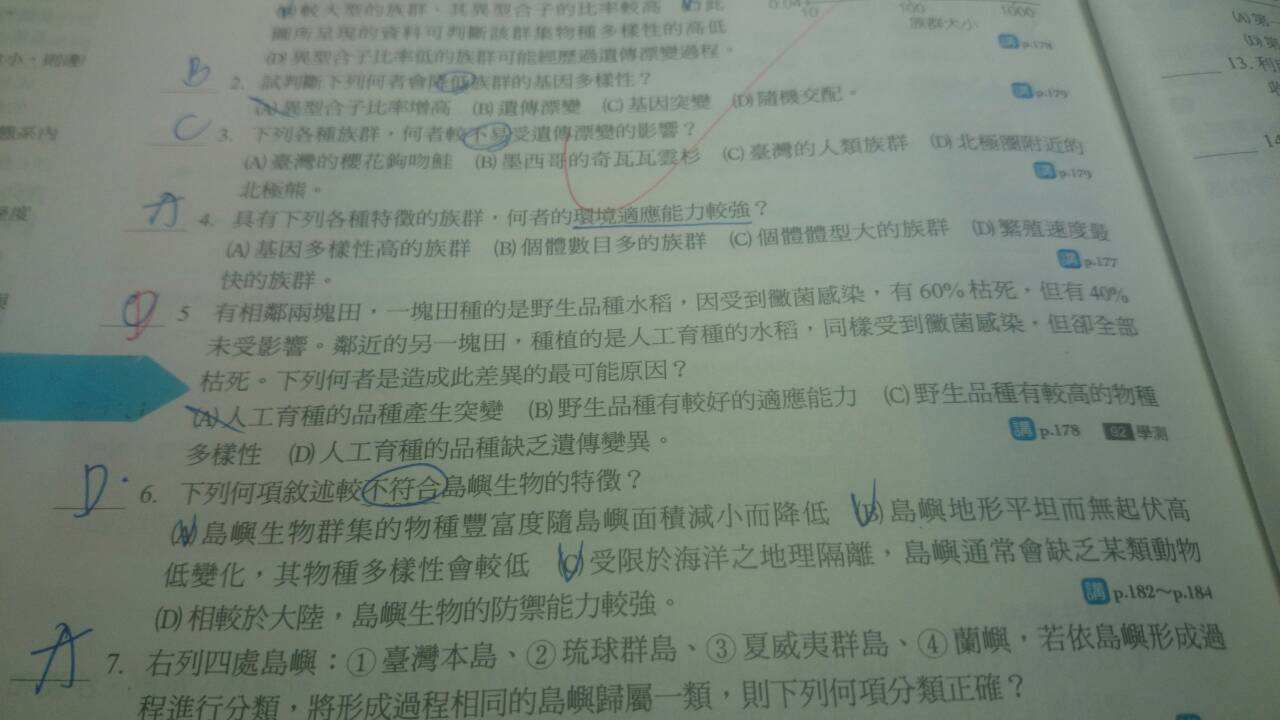 (A)較大型的族群，其異型合子的比率較高 (C)此
圖所呈現的資料可判斷該群集物種多樣性的高低
(D)異型合子比率低的族群可能經歷過遺傳漂變過程。
0.04
10 100 1000
族群大小
講 p.178
B 2. 試判斷下列何者會降低族群的基因多樣性？
(A)異型合子比率增高 (B)遺傳漂變 (C)基因突變 (D)隨機交配。
講 p.179
C 3. 下列各種族群，何者較不易受遺傳漂變的影響？
(A)臺灣的櫻花鉤吻鮭 (B)墨西哥的奇瓦瓦雲杉 (C)臺灣的人類族群 (D)北極圈附近的
北極熊。
講 p.179
A 4. 具有下列各種特徵的族群，何者的環境適應能力較強？
(A)基因多樣性高的族群 (B)個體數目多的族群 (C)個體體型大的族群 (D)繁殖速度最
快的族群。
講 p.177
D 5 有相鄰兩塊田，一塊田種的是野生品種水稻，因受到黴菌感染，有60%枯死，但有40%
未受影響。鄰近的另一塊田，種植的是人工育種的水稻，同樣受到黴菌感染，但卻全部
枯死。下列何者是造成此差異的最可能原因？
(A)人工育種的品種產生突變 (B)野生品種有較好的適應能力 (C)野生品種有較高的物種
多樣性 (D)人工育種的品種缺乏遺傳變異。
講 p.178 92 學測
D 6. 下列何項敘述較不符合島嶼生物的特徵？
(A)島嶼生物群集的物種豐富度隨島嶼面積減小而降低 (B)島嶼地形平坦而無起伏高
低變化，其物種多樣性會較低 (C)受限於海洋之地理隔離，島嶼通常會缺乏某類動物
(D)相較於大陸，島嶼生物的防禦能力較強。
講 p.182～p.184
A 7. 右列四處島嶼：①臺灣本島、②琉球群島、③夏威夷群島、④蘭嶼，若依島嶼形成過
程進行分類，將形成過程相同的島嶼歸屬一類，則下列何項分類正確？
(A)第一
(D)第
13. 利
14